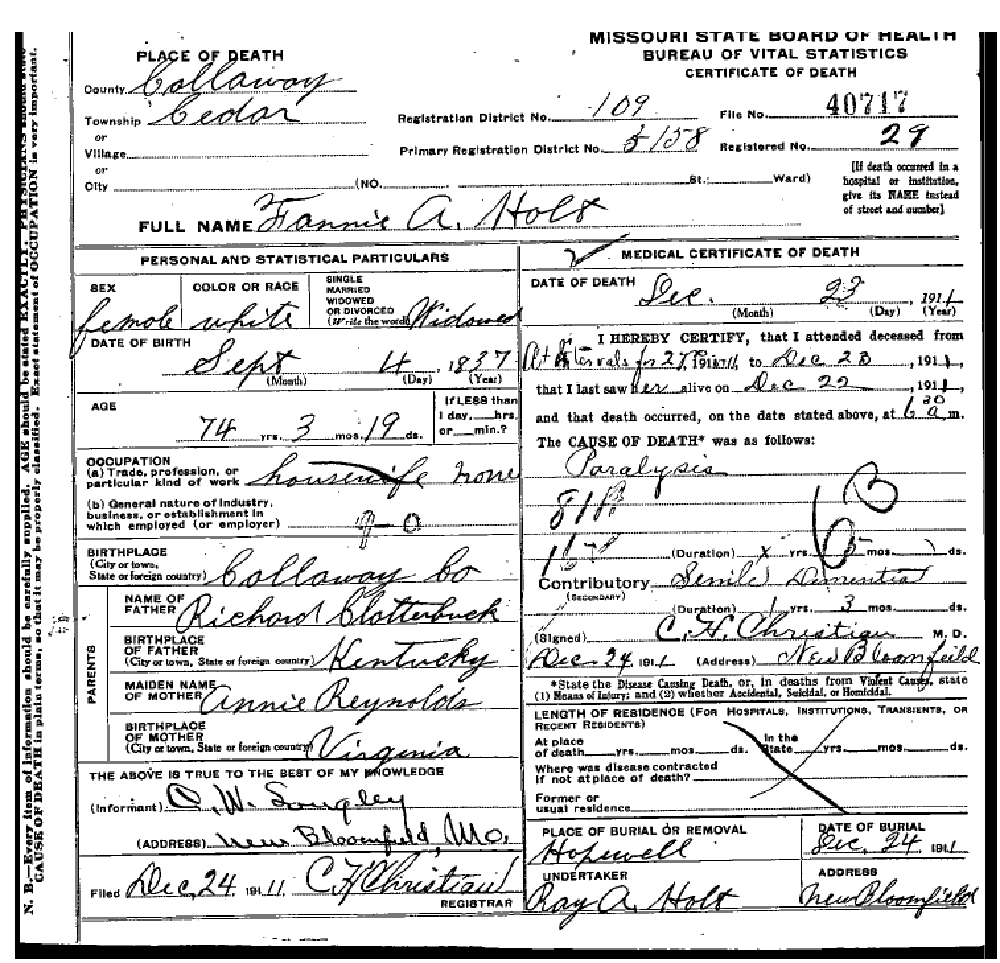 MISSOURI STATE BOARD OF HEALTH
BUREAU OF VITAL STATISTICS
CERTIFICATE OF DEATH
PLACE OF DEATH
County Callaway
Township Cedar
or
Village
or
City (NO. St.; Ward)
Registration District No. 109 File No. 40717
Primary Registration District No. 5158 Registered No. 29
[If death occurred in a
hospital or institution,
give its NAME instead
of street and number].
FULL NAME Fannie A. Holt
PERSONAL AND STATISTICAL PARTICULARS
SEX female
COLOR OR RACE white
SINGLE
MARRIED
WIDOWED
OR DIVORCED
(Write the word) Widowed
DATE OF BIRTH
Sept 4 1837
(Month) (Day) (Year)
AGE
74 yrs. 3 mos. 19 ds.
If LESS than
1 day, hrs.
or min.?
OCCUPATION
(a) Trade, profession, or
particular kind of work housewife none
(b) General nature of industry,
business, or establishment in
which employed (or employer)
9-0
BIRTHPLACE
(City or town,
State or foreign country) Callaway Co
PARENTS
NAME OF
FATHER Richard Clatterbuck
BIRTHPLACE
OF FATHER
(City or town, State or foreign country) Kentucky
MAIDEN NAME
OF MOTHER Annie Reynolds
BIRTHPLACE
OF MOTHER
(City or town, State or foreign country) Virginia
THE ABOVE IS TRUE TO THE BEST OF MY KNOWLEDGE
(Informant) O. W. Langley
(ADDRESS) New Bloomfield, Mo.
Filed Dec, 24. 1911 C H Christian
REGISTRAR
MEDICAL CERTIFICATE OF DEATH
DATE OF DEATH Dec. 23, 1911
(Month) (Day) (Year)
I HEREBY CERTIFY, that I attended deceased from
At intervals for 1911, to Dec 23, 1911,
that I last saw her alive on Dec 22, 1911,
and that death occurred, on the date stated above, at 6 30 a m.
The CAUSE OF DEATH* was as follows:
Paralysis
81B
(Duration) x yrs. mos. ds.
Contributory Senile Dementia
(SECONDARY)
(Duration) 1 yrs. 3 mos. ds.
(Signed) C. H. Christian M. D.
Dec. 24, 1911 (Address) New Bloomfield
*State the Disease Causing Death, or, in deaths from Violent Causes, state
(1) Means of Injury; and (2) whether Accidental, Suicidal, or Homicidal.
LENGTH OF RESIDENCE (FOR HOSPITALS, INSTITUTIONS, TRANSIENTS, OR
RECENT RESIDENTS)
At place In the
of death yrs. mos. ds. State yrs. mos. ds.
Where was disease contracted
if not at place of death?
Former or
usual residence
PLACE OF BURIAL OR REMOVAL
Hopewell
DATE OF BURIAL
Dec. 24 1911
UNDERTAKER
Ray A. Holt
ADDRESS
New Bloomfield
N. B.—Every item of information should be carefully supplied. AGE should be stated EXACTLY. PHYSICIANS should state
CAUSE OF DEATH in plain terms, so that it may be properly classified. Exact statement of OCCUPATION is very important.